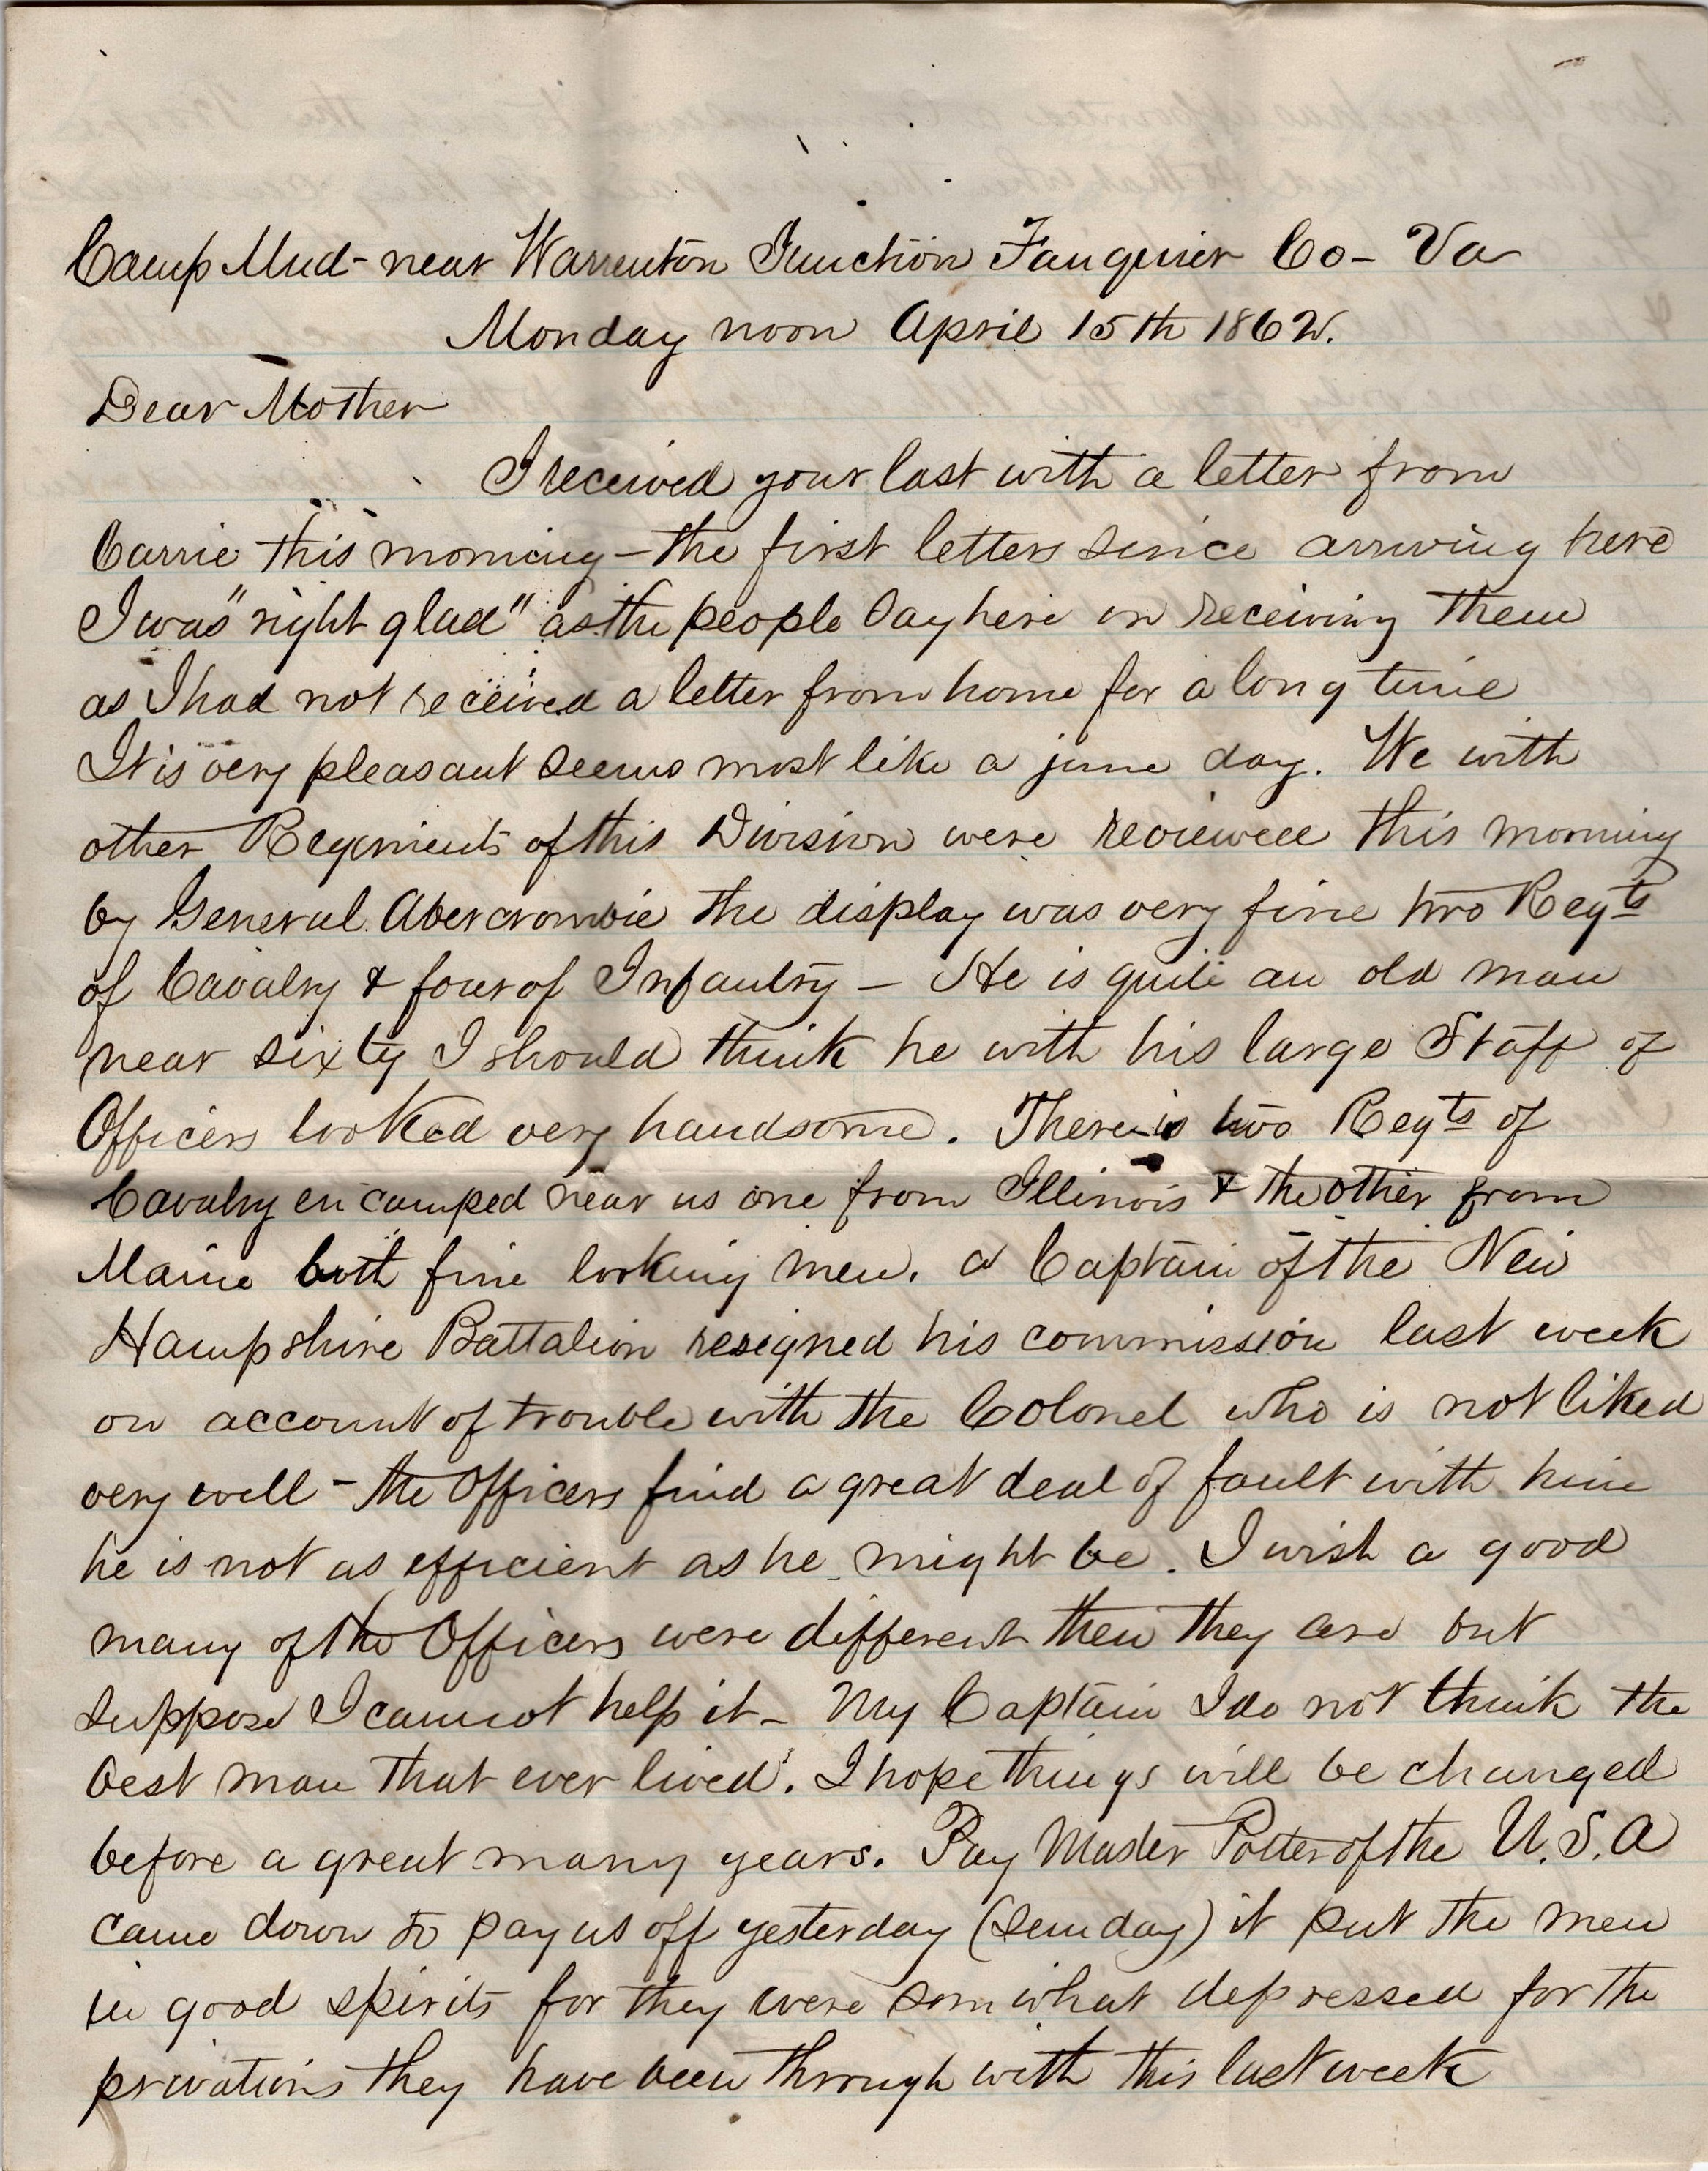 Camp Mud - near Warrenton Junction Fauquier Co - Va
Monday noon April 15th 1862.
Dear Mother
I received your last with a letter from
Carrie this morning - the first letters since arriving here
I was "right glad" as the people say here on receiving them
as I had not received a letter from home for a long time
It is very pleasant seems most like a june day. We with
other Regiments of this Division were reviewed this morning
by General Abercrombie the display was very fine two Regts
of Cavalry & four of Infantry - He is quite an old man
near sixty I should think he with his large Staff of
Officers looked very handsome. There is two Regts of
Cavalry encamped near us one from Illinois & the other from
Maine both fine looking men. a Captain of the New
Hampshire Battalion resigned his commission last week
on account of trouble with the Colonel who is not liked
very well - the Officers find a great deal of fault with him
he is not as efficient as he might be. I wish a good
many of the Officers were different then they are but
suppose I cannot help it - My Captain I do not think the
best man that ever lived. I hope things will be changed
before a great many years. Pay Master Potter of the U.S.A
came down to pay us off yesterday (Sunday) it put the men
in good spirits for they were somwhat depressed for the
privations they have been through with this last week